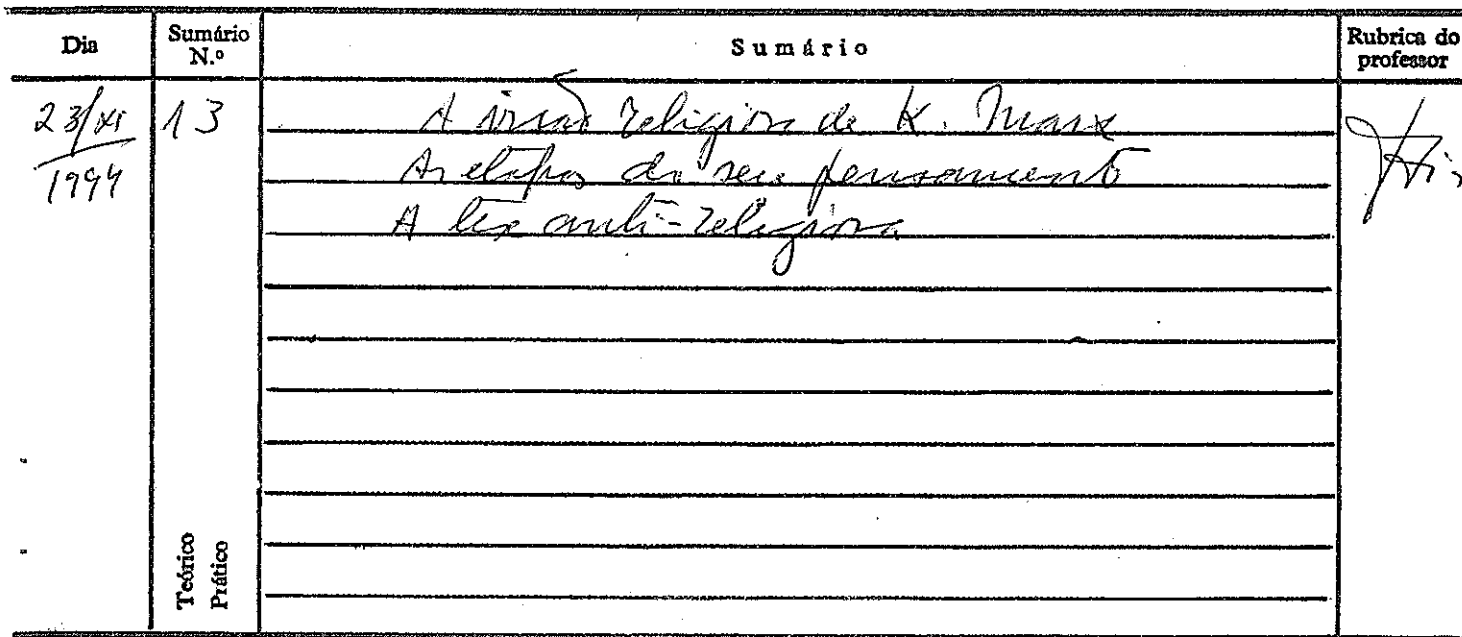 Dia
Sumário N.º
Sumário
Rubrica do professor
23/XI
1994
13
A visão religiosa de K. Marx
As etapas do seu pensamento
A tese anti-religiosa
Teórico
Prático